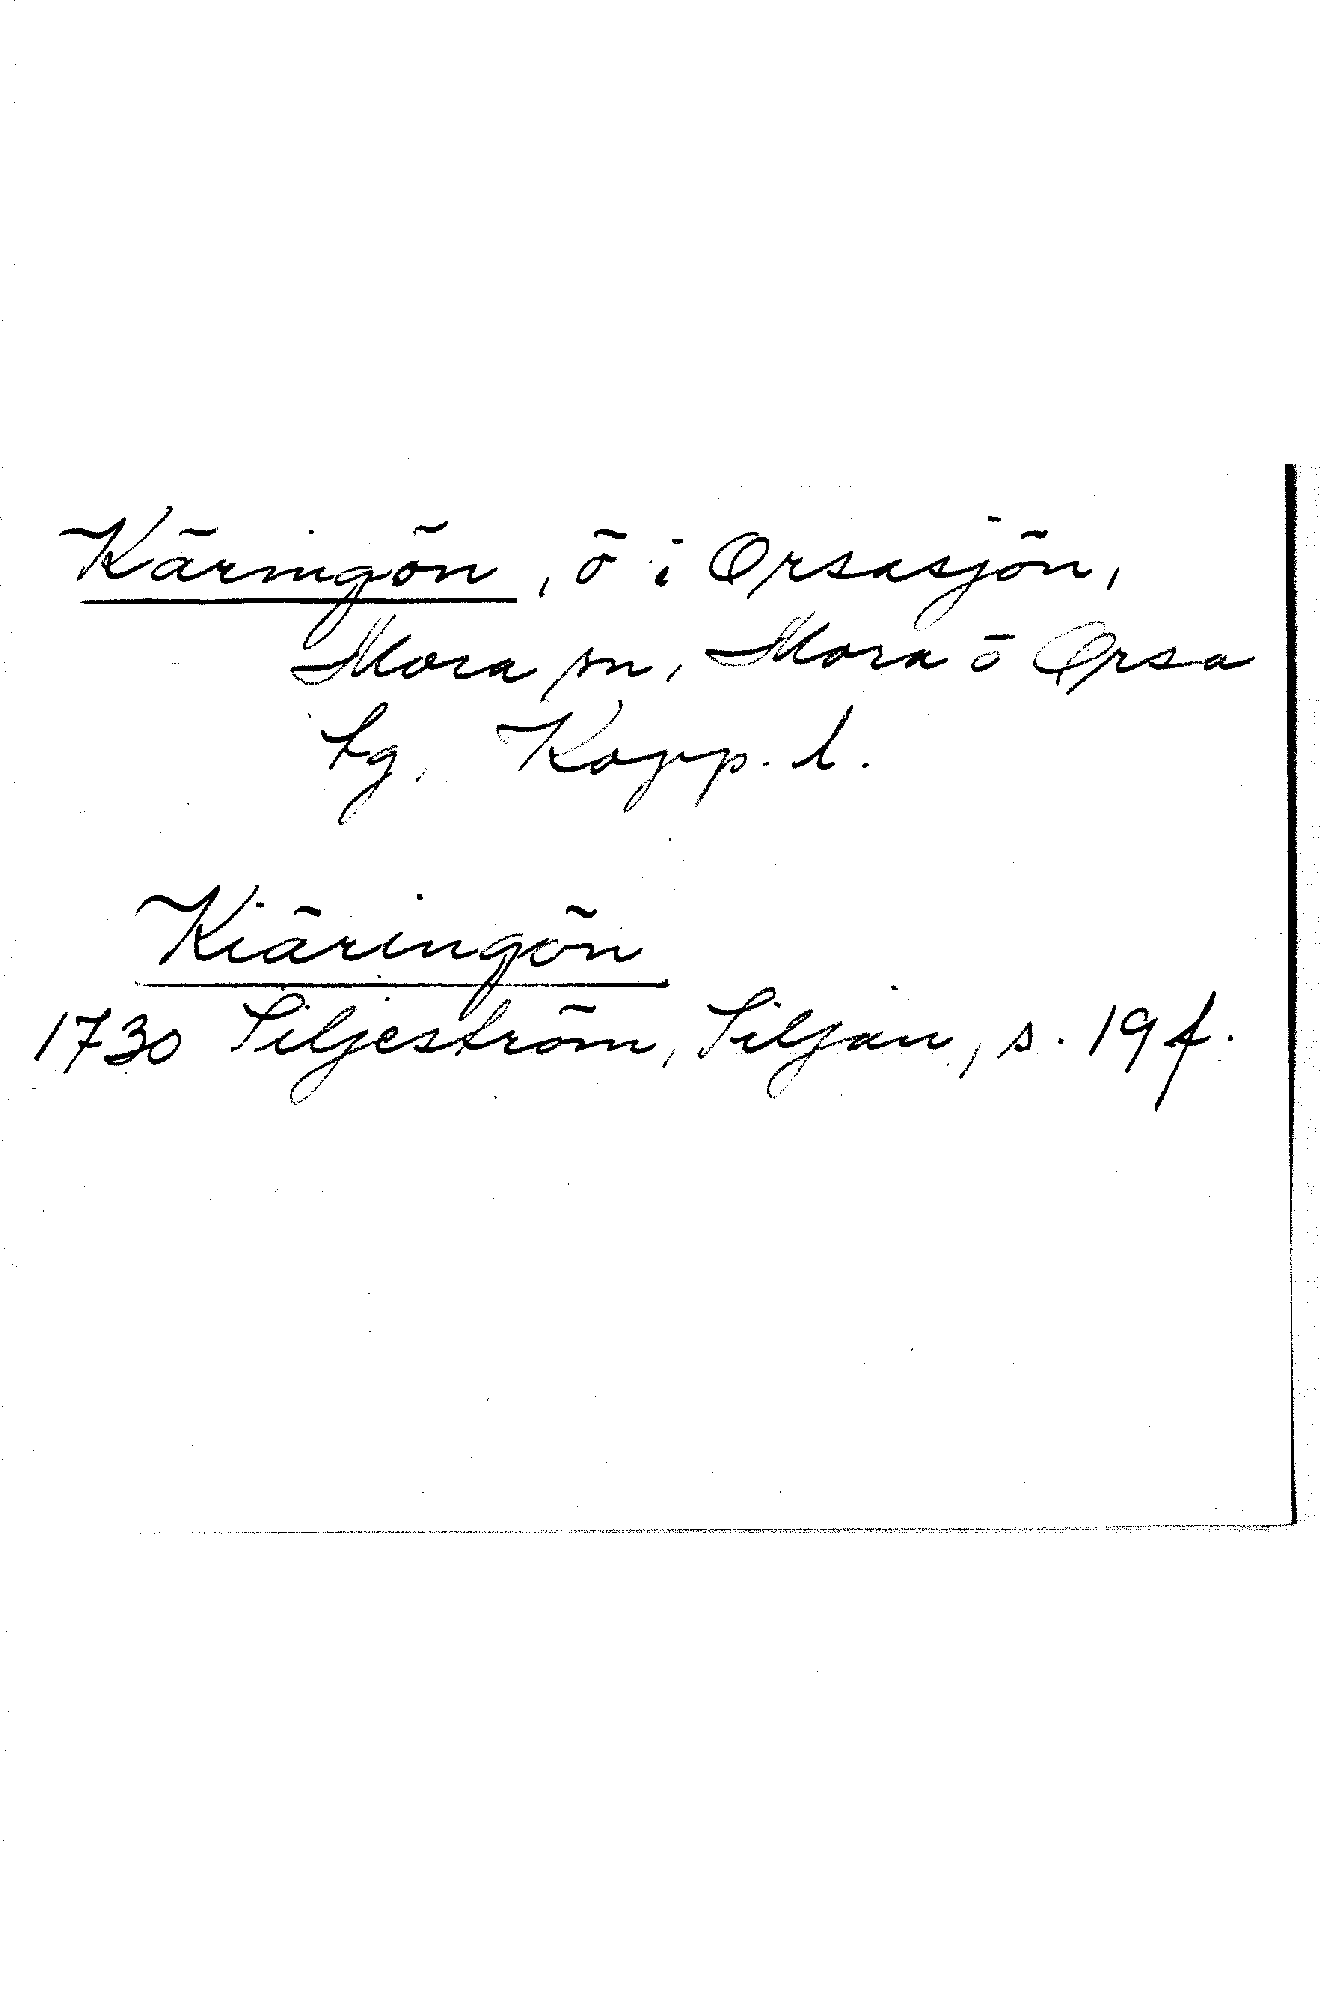 Käringön, ö i Orsasjön,
Mora sn, Mora ö Orsa
tg, Kopp. l.
Kiäringön
1730 Siljeström, Siljan, s. 19 f.